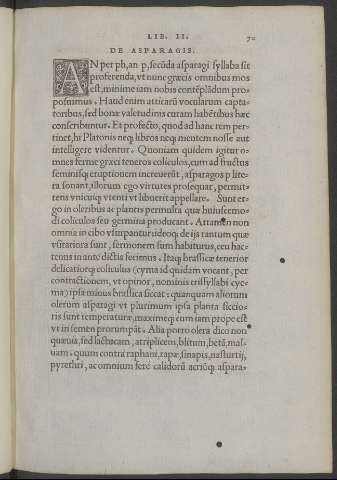 LIB. II. 70
DE ASPARAGIS.
AN per ph, an p, secūda asparagi syllaba sit
proferenda, vt nunc græcis omnibus mos
est, minime iam nobis contēplādum pro-
posuimus. Haud enim atticarū vocularum capta-
toribus, sed bonæ valetudinis curam habētibus hæc
conscribuntur. Et profecto, quod ad hanc rem per-
tinet, hi Platonis neq; libros neq; mentem nosse aut
intelligere videntur. Quoniam quidem igitur o-
mnes ferme græci teneros coliculos, cum ad fructus
seminisq; eruptionem increuerit, asparagos p lite-
ra sonant, illorum ego virtutes prosequar, permit-
tens vnicuiq; vtenti vt libuerit appellare. Sunt er-
go in oleribus ac plantis permulta quæ huiuscemo-
di coliculos seu germina producant. Attamen non
omnia in cibo vsurpantur: ideoq; de ijs tantum quæ
vsitatiora sunt, sermonem sum habiturus, ceu hac-
tenus in ante dictis fecimus. Itaq; brassicæ tenerior
delicatiorq; coliculus (cyma id quidam vocant, per
contractionem, vt opinor, nominis trisyllabi cyc-
ma) ipsa minus brassica siccat: quanquam aliorum
olerum asparagi vt plurimum ipsa planta siccio-
ris sunt temperaturæ, maximeq; cum iam prope est
vt in semen prorumpāt. Alia porro olera dico non
quæuis, sed lactucam, atriplicem, blitum, betā, mal-
uam. quum contra raphani, rapæ, sinapis, nasturtij,
pyrethri, ac omnium ferè calidorū acriūq; aspara-